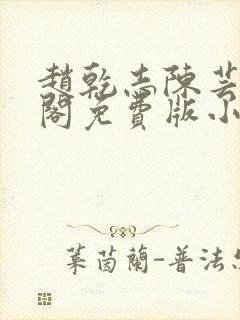 趙乾志陳芸
閣免費版小
葉茵蘭-普法